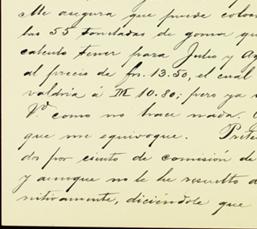 Me asegura que puede colo
las 55 toneladas de goma qu
calculo tener para Julio y Ag
al precio de fr. 13.50, el cual
valdria á M 10.80; pero ya
Vd. como no hace nada.
que me equivoque. Prete
dos por ciento de comision de
y aunque no le he resuelto d
nitivamente, diciéndole que